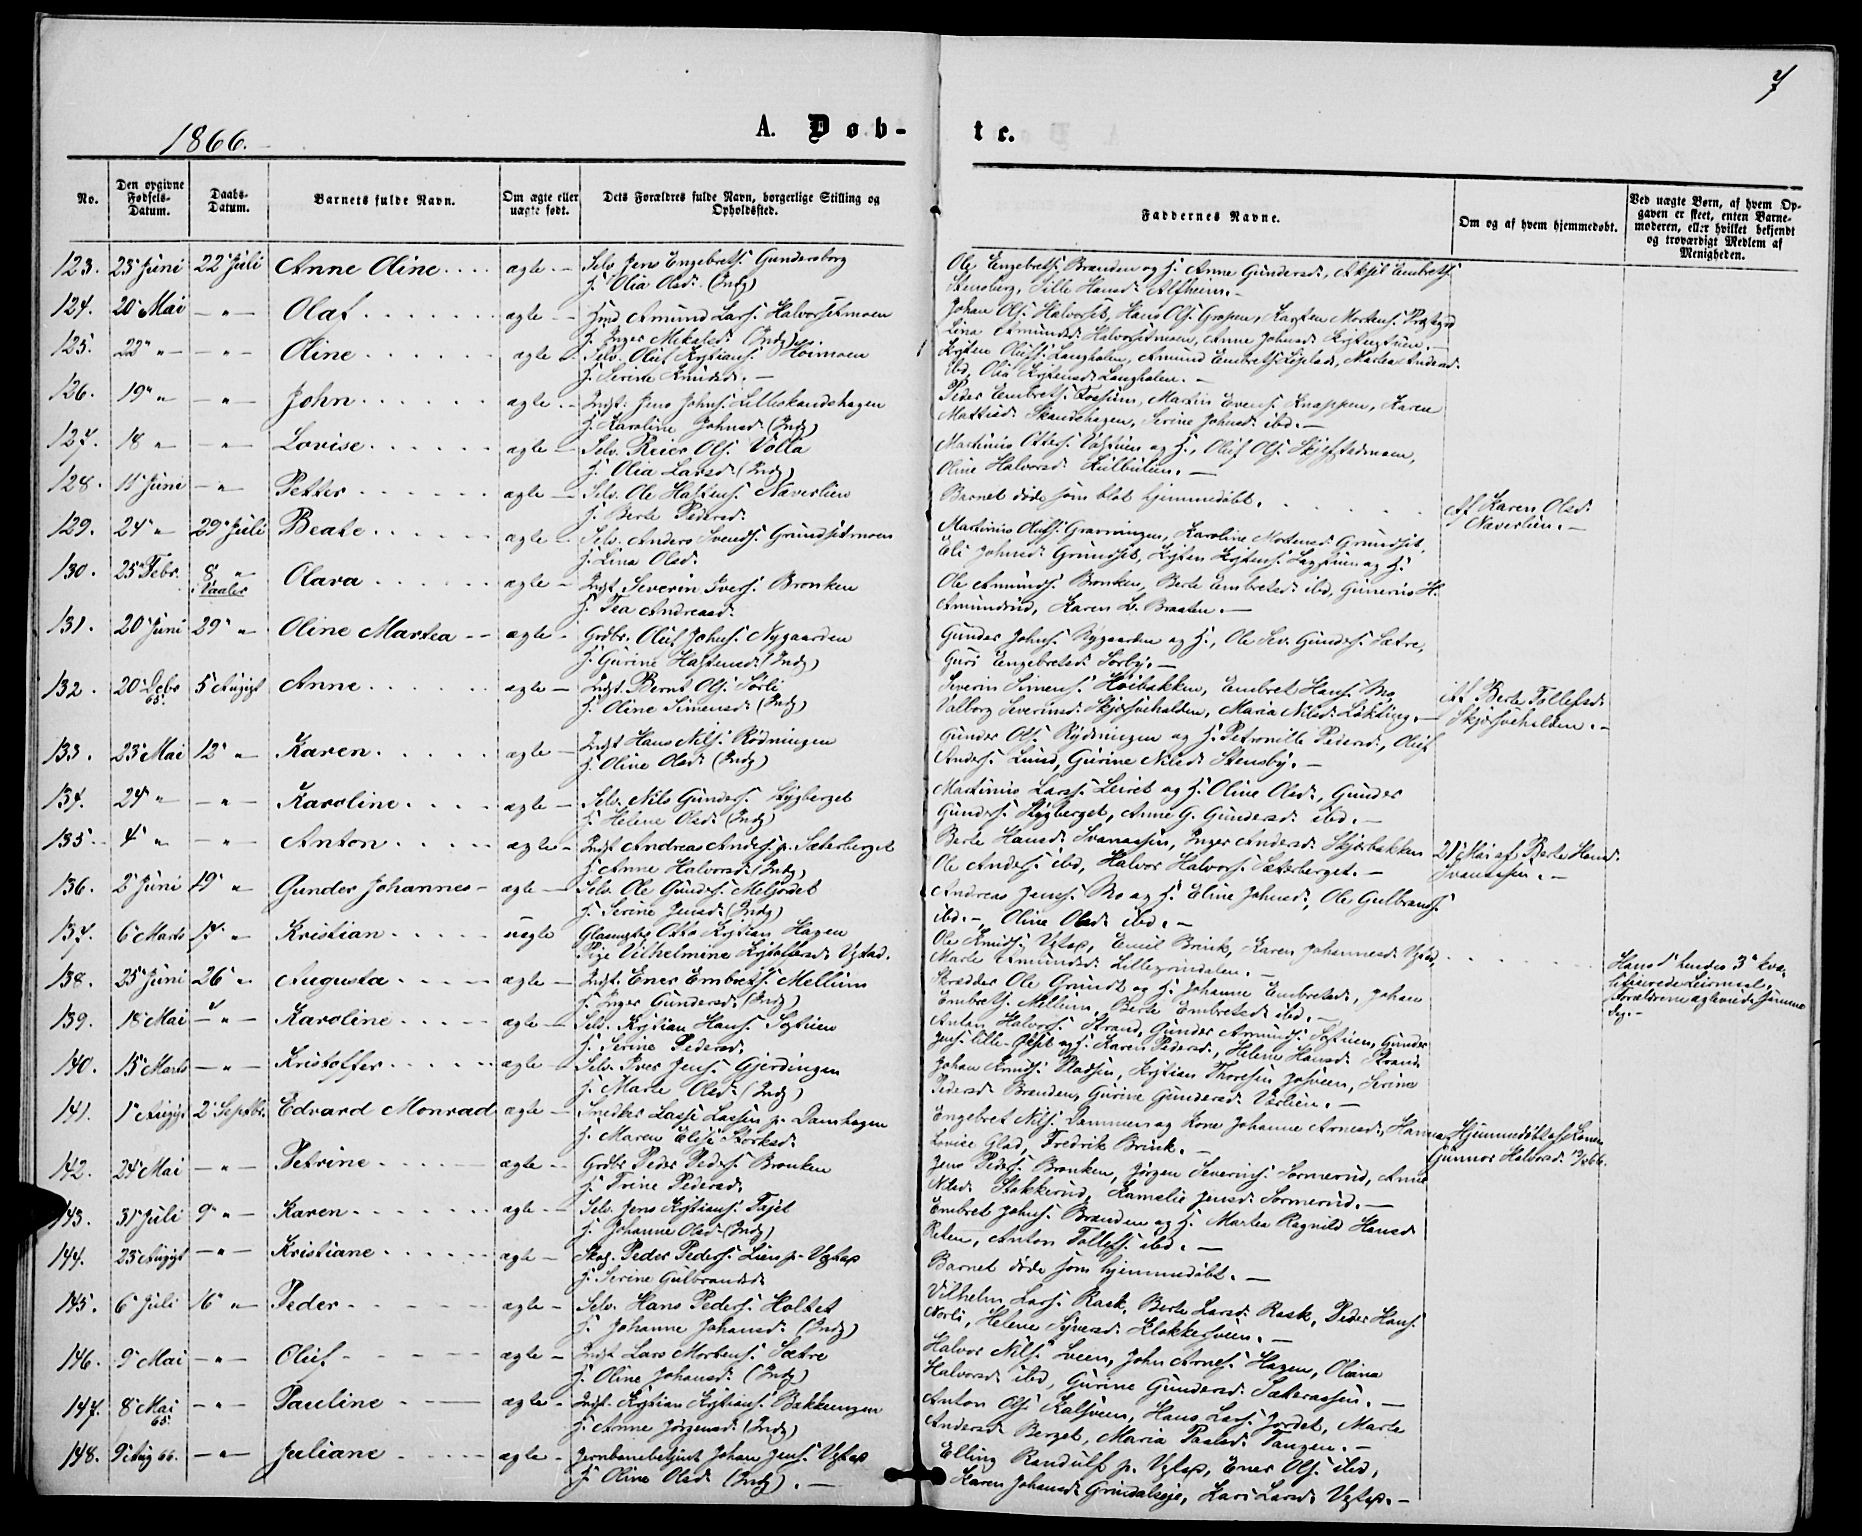 7
1866.
A. Døb-
te.
No.
Den opgivne Fødsels-Datum.
Daabs-Datum.
Barnets fulde Navn.
Om ægte eller uægte født.
Dets Forældres fulde Navn, borgerlige Stilling og Opholdssted.
Faddernes Navne.
Om og af hvem hjemmedøbt.
Ved uægte Børn, af hvem Opgaven er skeet, enten Barnemoderen, eller hvilket bekjendt og troværdigt Medlem af Menigheden.
123. 25 Juni 22 Juli Anne Oline ægte Selv. Jens Engebrets. Gundersborg
H. Olia Olsd. (Indg)
Ole Engebrets. Brænden og H. Anne Gundersd., Aksel Embrets.
Stensberg, Sille Hansd. Alfheim.
124. 20 Mai - " - Olaf ægte Hmd Amund Lars. Halvorsetmoen
H. Inger Mikelsd. (Indg)
Johan Ols. Halvorset, Hans Ols. Grapen, Karsten Mortens.
Lina Amundsd. Halvorsetmoen, Anne Johnsd.
125. 22 " - " - Oline ægte Selv. Oluf Kristians. Moimoen
H. Serine Knudsd.
Kristen Olufs. Langhalen, Amund Embrets.
ibd, Olia Kristensd. Langhalen.
126. 19 " - " - John ægte Indst. Jens Johns. Lilleskandshagen
H. Karoline Johnsd. (Indg)
Peder Embrets. Fossum, Martin Evens. Knappen, Karen
Mattisd. Skandshagen, Serine Johnsd. ibd.
127. 18 " - " - Lovise ægte Selv. Reier Ols. Volla
H. Olia Larsd. (Indg)
Martinus Ottes. og H., Oluf Ols. Skjefstadmoen,
Oline Halvorsd. Kulbulien.
128. 11 Juni - " - Petter ægte Selv. Ole Halstens. Naverlien
H. Berte Pedersd.
Barnet døde som blot hjemmedøbt.
Af Karen Olsd. Naverlien.
129. 24 " 29 Juli Beate ægte Selv. Anders Svends. Grundsetmoen
H. Lina Olsd.
Martinus Olufs. Gravningen, Karoline Mortensd. Grundset,
Eli Johnsd. Grundset, Kristen Kristens. og H.
130. 25 Febr. 8 " Vaaler Olava ægte Indst. Severin Ivers. Bronken
H. Tea Andreasd.
Ole Amunds. Bronken, Berte Embretsd. ibd, Gunerius H.
Amundrud, Karen L. Braaten.
131. 20 Juni 29 " Oline Martea ægte Grdbr. Oluf Johns. Nygaarden
H. Gurine Halstensd. (Indg)
Gunder Johns. Nygaarden og H., Ole Sev. Gunders. Sætre,
Guri Engebretsd. Sorby.
132. 20 Debr 65. 5 August Anne ægte Indst. Bernt Ols. Sørli
H. Oline Simensd. (Indg)
Severin Simens. Høibakken, Embret Hans. Mo,
Valborg Severinsd. Skjæsvehalden, Maria Nilsd. Løkting.
Af Berte Tollefsd. Skjæsvehalden.
133. 23 Mai 12 " Karen ægte Indst Hans Nils. Rødningen
H. Oline Olsd. (Indg)
Gunder Ols. Rydningen og H. Petronille Pedersd., Oluf
Anders. Lund, Gurine Nilsd. Stensby.
134. 24 " - " - Karoline ægte Selv. Nils Gunders. Stygberget
H. Helene Olsd. (Indg)
Martinius Lars. Leiret og H. Oline Olsd., Gunder
Gunders. Stygberget, Anne G. Gundersd. ibd.
135. 4 " - " - Anton ægte Indst Andreas Anders. p. Sæterberget
H. Anne Halvorsd. (Indg)
Berte Hansd. Svanaasen, Inger Andersd. Skjærbakken
Ole Anders. ibd, Halvor Halvors. Sæterberget.
21 Mai af Berte Hansd. Svanaasen.
136. 2 Juni 19 " Gunder Johannes ægte Selv. Ole Gunders. Melgordet
H. Serine Jensd. (Indg)
Andreas Jens. Mo og H. Eline Johnsd., Ole Gulbrands.
ibd., Oline Olsd. ibd.
137. 6 Marts " Kristian uegte Otto Kristian Hagen
Pige Vilhelmine
Ole Knuds. Vestap, Emil Brink, Karen Johannesd.
Marte Amundsd. Lillegrindalen.
Hans 1 hendes 3
138. 25 Juni 26 " Augusta ægte Indst. Ener Embrets. Mellum
H. Inger Gundersd. (Indg)
Skrædder Ole Grundt og H. Johanne Embretsd., Johan
Embrets. Mellum, Berte Embretsd. ibd.
139. 18 Mai - " - Karoline ægte Selv. Kristian Hans.
H. Serine Pedersd.
Anton Halvors. Strand, Gunder Amunds. Gunder
Jens. og H. Karen Pedersd., Helene Hansd. Strand
140. 15 Marts - " - Kristoffer ægte Selv. Iver Jens. Gjerdingen
H. Marte Olsd. (Indg)
Johan Knuds. Kristian Thoresen Serine
Pedersd. Brænden, Gurine Gundersd. Verlien.
141. 1 August 2 Septbr. Edvard Monrad ægte Snedker Lasse Lassen p. Damhagen
H. Maren Elise Størksd.
Engebret Nils. Dammen og Kone Johanne Arnesd., Hanna
Lovise Glad, Fredrik Brink.
Hjemmedøbt af Konen Gunnor Halvorsd.
142. 24 Mai - " - Petrine ægte Grdbr Peder Peders. Bronken
H. Trine Pedersd.
Jens Peders. Bronken, Jørgen Severins. Sormerud, Anne
Nilsd. Stakkerud, Kamelie Jensd. Sormerud.
143. 31 Juli 9 " Karen ægte Selv. Jens Kristians. Fajet
H. Johanne Olsd. (Indg)
Embret Johns. Brænden og H. Martea Ragnild Hansd
Reten, Anton Tollefs. ibd.
144. 23 August - " - Kristiane ægte Skog. Peder Peders. Lien p. Vestap
H. Serine Gulbrandsd.
Barnet døde som hjemmedøbt.
145. 6 Juli 16 " Peder ægte Selv. Hans Peders. Holtet
H. Johanne Johansd. (Indg)
Vilhelm Lars. Rask, Berte Larsd. Rask, Peder Hans.
Norli, Helene Syversd. Klokkersveen.
146. 9 Mai - " - Oluf ægte Indst Lars Mortens. Sætre
H. Oline Johansd. (Indg)
Halvor Nils. Sveen, John Arnes. Hagen, Oliana
Halvorsd. ibd, Gurine Gundersd. Sæteraasen.
147. 8 Mai 65. - " - Pauline ægte Indst. Kristian Kristians. Bakkengen
H. Anne Jørgensd. (Indg)
Anton Ols. Kalsveen, Hans Lars. Jordet, Marte
Andersd. Berget, Maria Paalsd. Tangen.
148. 9 Aug 66. - " - Juliane ægte Jernbanebetjent Johan Jens. Vestap
H. Oline Olsd. (Indg).
Elling Randulf p. Vestap, Ener Ols. ibd,
Karen Johansd. Grindalseje, Kari Larsd. Vestap.